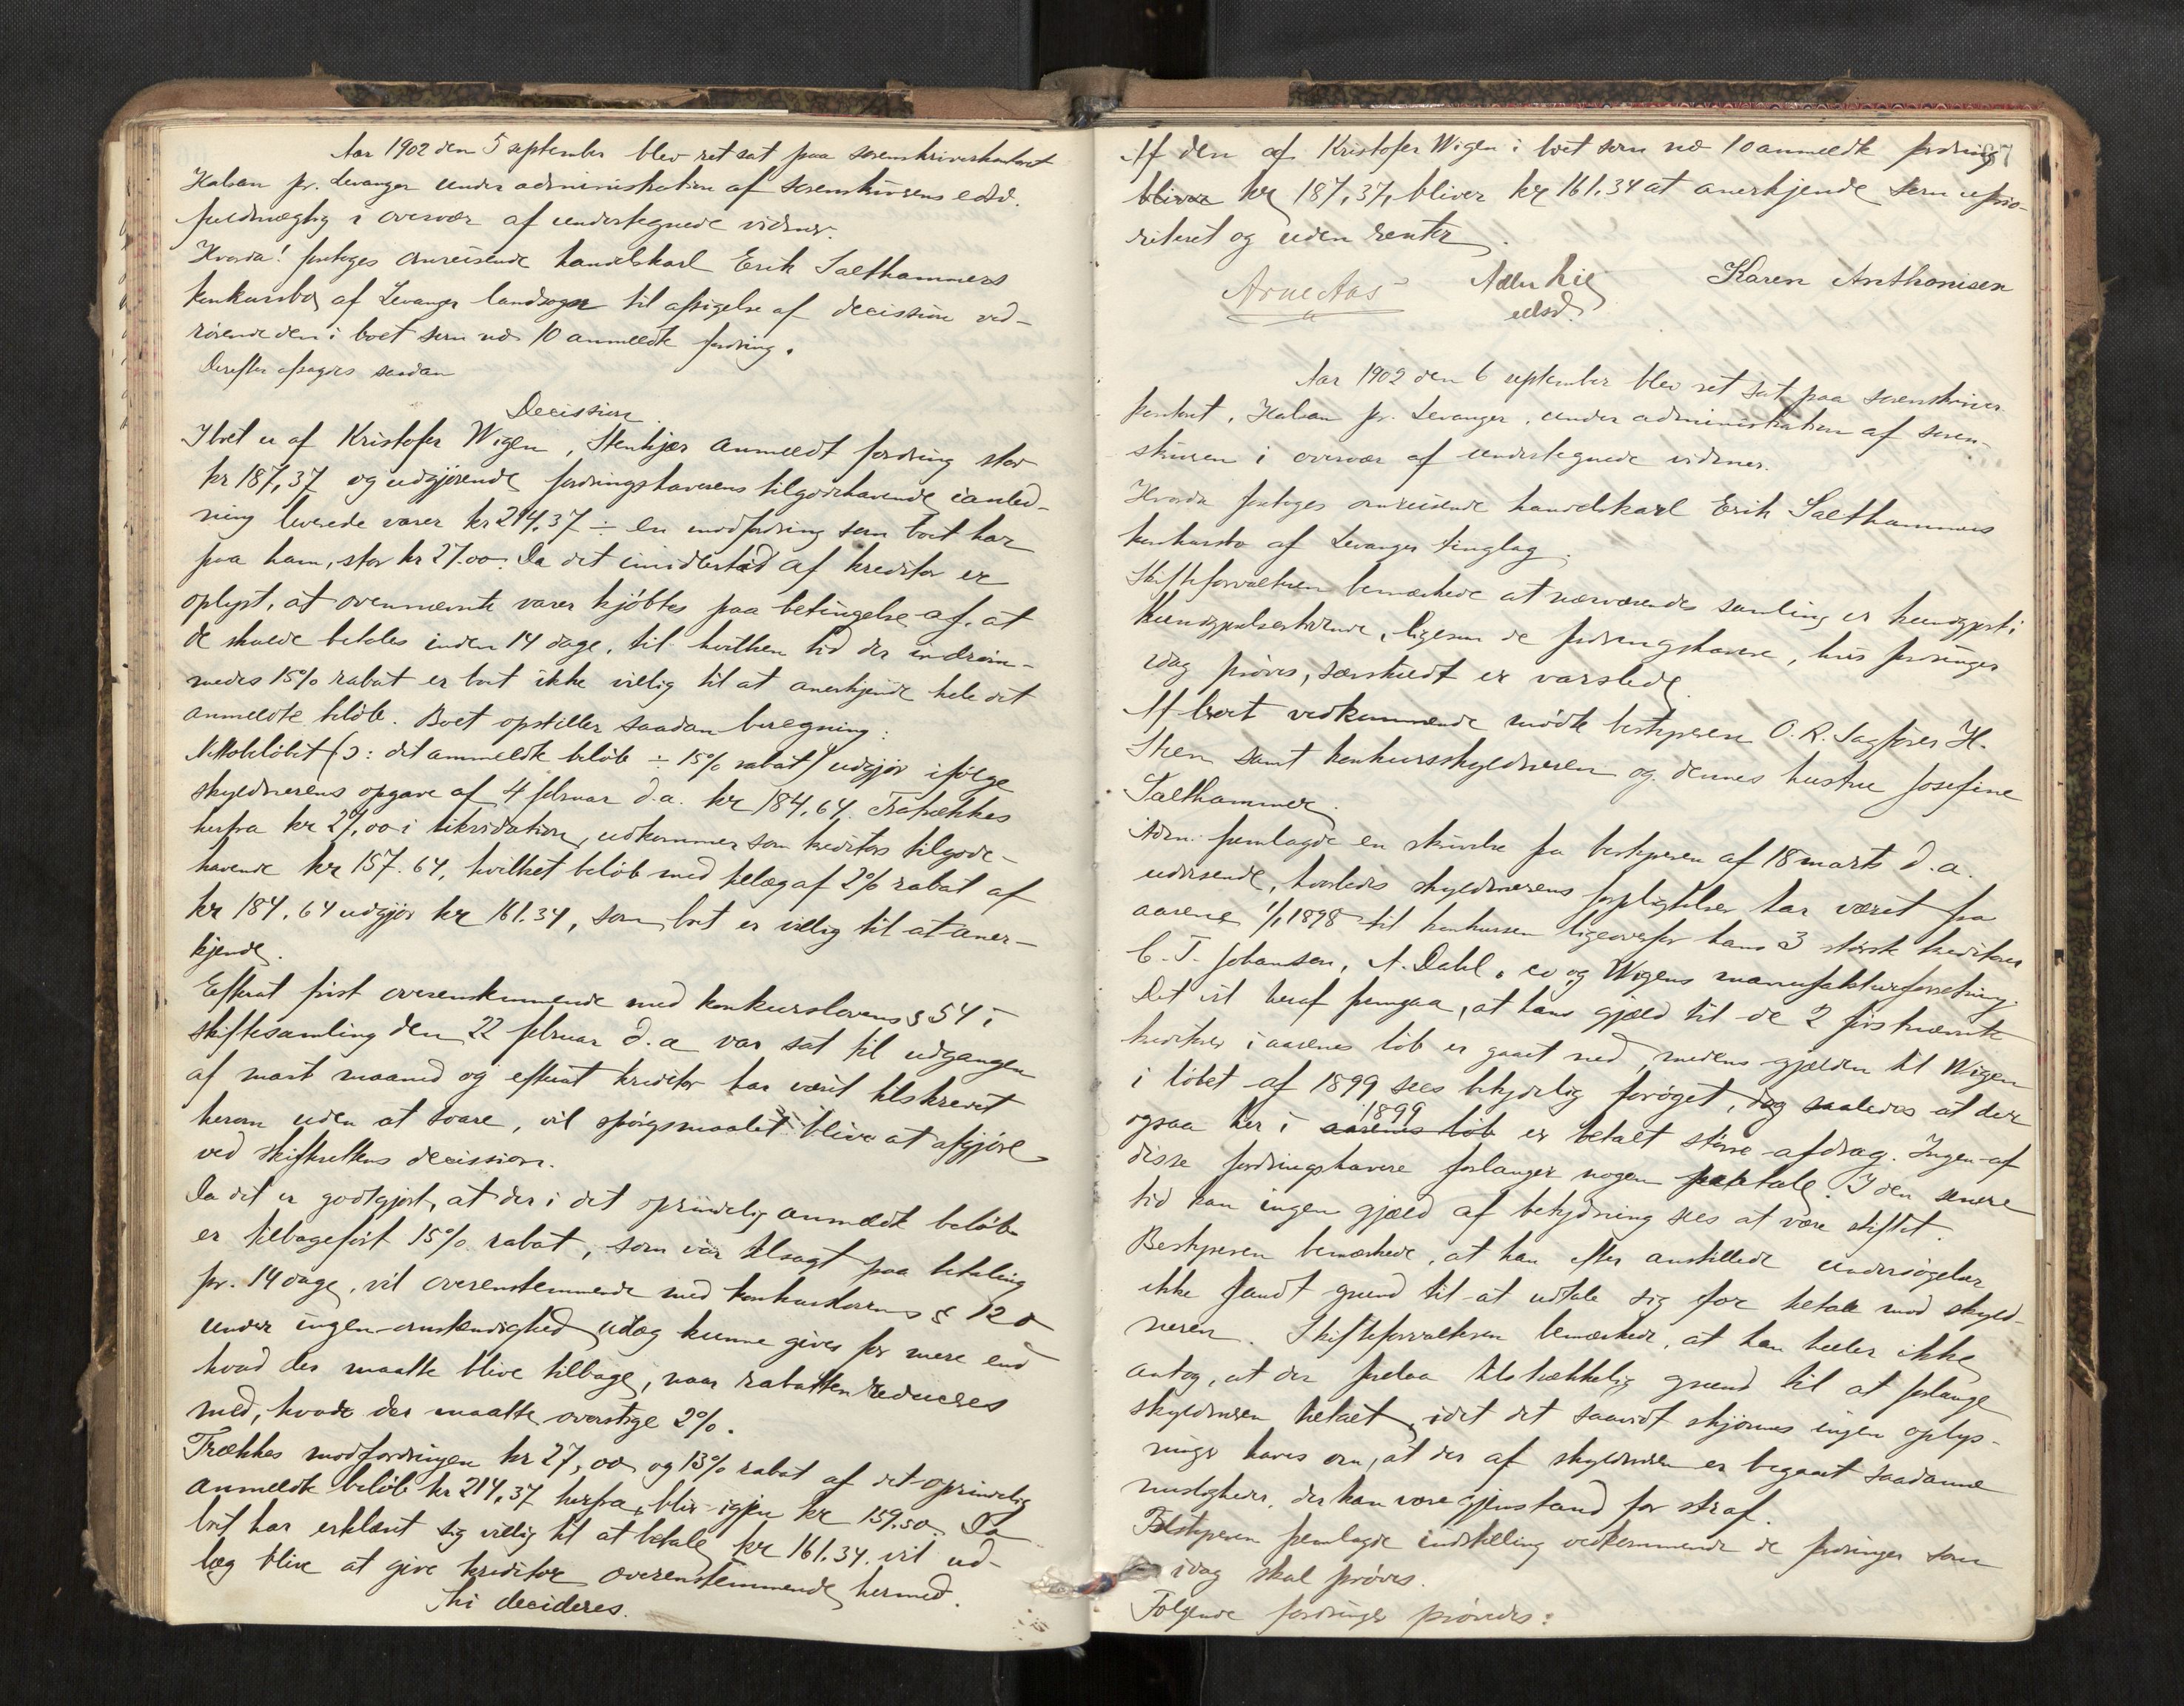 Aar 1902 den 5 september blev ret sat paa sorenskriverkontoret
Halsan pr. Levanger under administration af sorenskriverens edsv.
fuldmægtig i overvær af undertegnede vidner.
Hvorda! foretoges omreisende handelskarl Erik Salthammers
konkursbo af Levanger landsogn til afsigelse af decission ved-
rørende den i boet som no 10 anmeldte fordring.
Derefter afsagdes saadan
Decission.
I boet er af Kristofer Wigen, Stenkjær anmeldt fordring stor
kr 187,37 og udgjørende fordringshaverens tilgodehavende i anled-
ning leverede varer kr 214.37 ÷ en modfordring som boet har
paa ham, stor kr 27.00. Da det imidlertid af kreditor er
oplyst, at ovennævnte varer kjøbtes paa betingelse af, at
de skulde betales inden 14 dage, til hvilken tid der indrøm-
medes 15% rabat er boet ikke villig til at anerkjende hele det
anmeldte beløb. Boet opstiller saadan beregning:
Nettobeløbet (ɔ: det anmeldte beløb ÷ 15% rabat) udgjør ifølge
skyldnerens opgave af 4 februar d.a. kr 184.64. Fratrækkes
herfra kr 27,00 i likvidation, udkommer som kreditors tilgode-
havende kr 157.64, hvilket beløb med tillæg af 2% rabat af
kr 184.64 udgjør kr 161.34, som boet er villig til at aner-
kjende.
Efterat frist overensstemmende med konkurslovens § 54 i
skiftesamling den 22 februar d.a var sat til udgangen
af mart maaned og efterat kreditor har været tilskrevet
herom uden at svare, vil spørgsmaalet blive at afgjøre
ved skifterettens decission.
Da det er godtgjort, at der i det oprindelig anmeldte beløb
er tilbageført 15% rabat, som var tilsagt paa betaling
pr. 14 dage, vil overensstemmende med konkurslovens § 120
under ingen omstændighed udlæg kunne gives for mere end
hvad der maatte blive tilbage, naar rabatten reduceres
med, hvad der maatte overstige 2%.
Trækkes modfordringen kr 27,00 og 13% rabat af det oprindelig
anmeldte beløb kr 214,37 herfra, blir igjen kr 159.50. Da
boet har erklært sig villig til at betale kr 161.34. vil ud-
læg blive at give kreditor overensstemmende hermed.
Thi decideres.
Af den af Kristofer Wigen i boet som no 10 anmeldte fordring
blivr kr 187,37, bliver kr 161.34 at anerkjende som uprio-
riteret og uden renter.
Arne Aas Lie Karen Anthonisen
edsv.
Aar 1902 den 6 september blev ret sat paa sorenskriver
kontoret, Halsan pr. Levanger, under administration af soren-
skriveren i overvær af undertegnede vidner.
Hvorda foretoges omreisende handelskarl Erik Salthammers
konkursbo af Levanger tinglag.
Skifteforvalteren bemærkede at nærværende samling er kundgjort i
kundgjørelsestidende, ligesom de fordringshavere, hvis fordringer
idag prøves, særskildt er varslede.
Af boet vedkommende mødte bestyreren O.R. Sagfører H.
Steen samt konkursskyldneren og dennes hustru Josefine
Salthammer.
Adm. fremlagde en skrivelse fra bestyreren af 18 marts d.a.
udvisende, hvorledes skyldnerens forpligtelser har været fra
aarene 1/1 1898 til konkursen ligeoverfor hans 3 største kreditorer
C. T. Johansen, A. Dahl & co og Wigens manufakturforretning.
Det vil heraf fremgaa, at hans gjæld til de 2 førstnævnte
kreditorer i aarenes løb er gaaet ned, medens gjælden til Wigen
i løbet af 1899 sees betydelig forøget, dog saaledes at der
ogsaa her i aarenes løb 1899 er betalt større afdrag. Ingen af
disse fordringshavere forlanger nogen paatale. I den senere
tid kan ingen gjæld af betydning sees at være stiftet.
Bestyreren bemærkede, at han efter anstillede undersøgelser
ikke fandt grund til at udtale sig for tiltale mod skyld-
neren. Skifteforvalteren bemærkede, at han heller ikke
antog, at der forelaa tilstrækkelig grund til at forlange
skyldneren tiltalt, idet det saavidt skjønnes ingen oplys-
ninger haves om, at der af skyldneren er begaaet saadanne
misligheder, der kan være gjenstand for straf.
Bestyreren fremlagde indstilling vedkommende de fordringer som
idag skal prøves.
Følgende fordringer prøvedes: